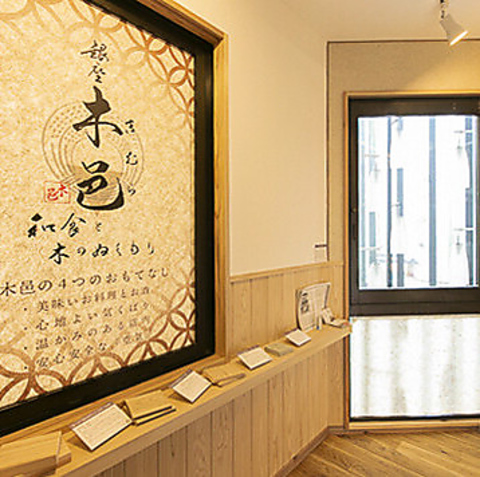 銀座
木邑
きむら
木邑
和食と
木のぬくもり
木邑の4つのおもてなし
・美味いお料理とお酒
・心地よい気くばり
・温かみのある
・安心安全な